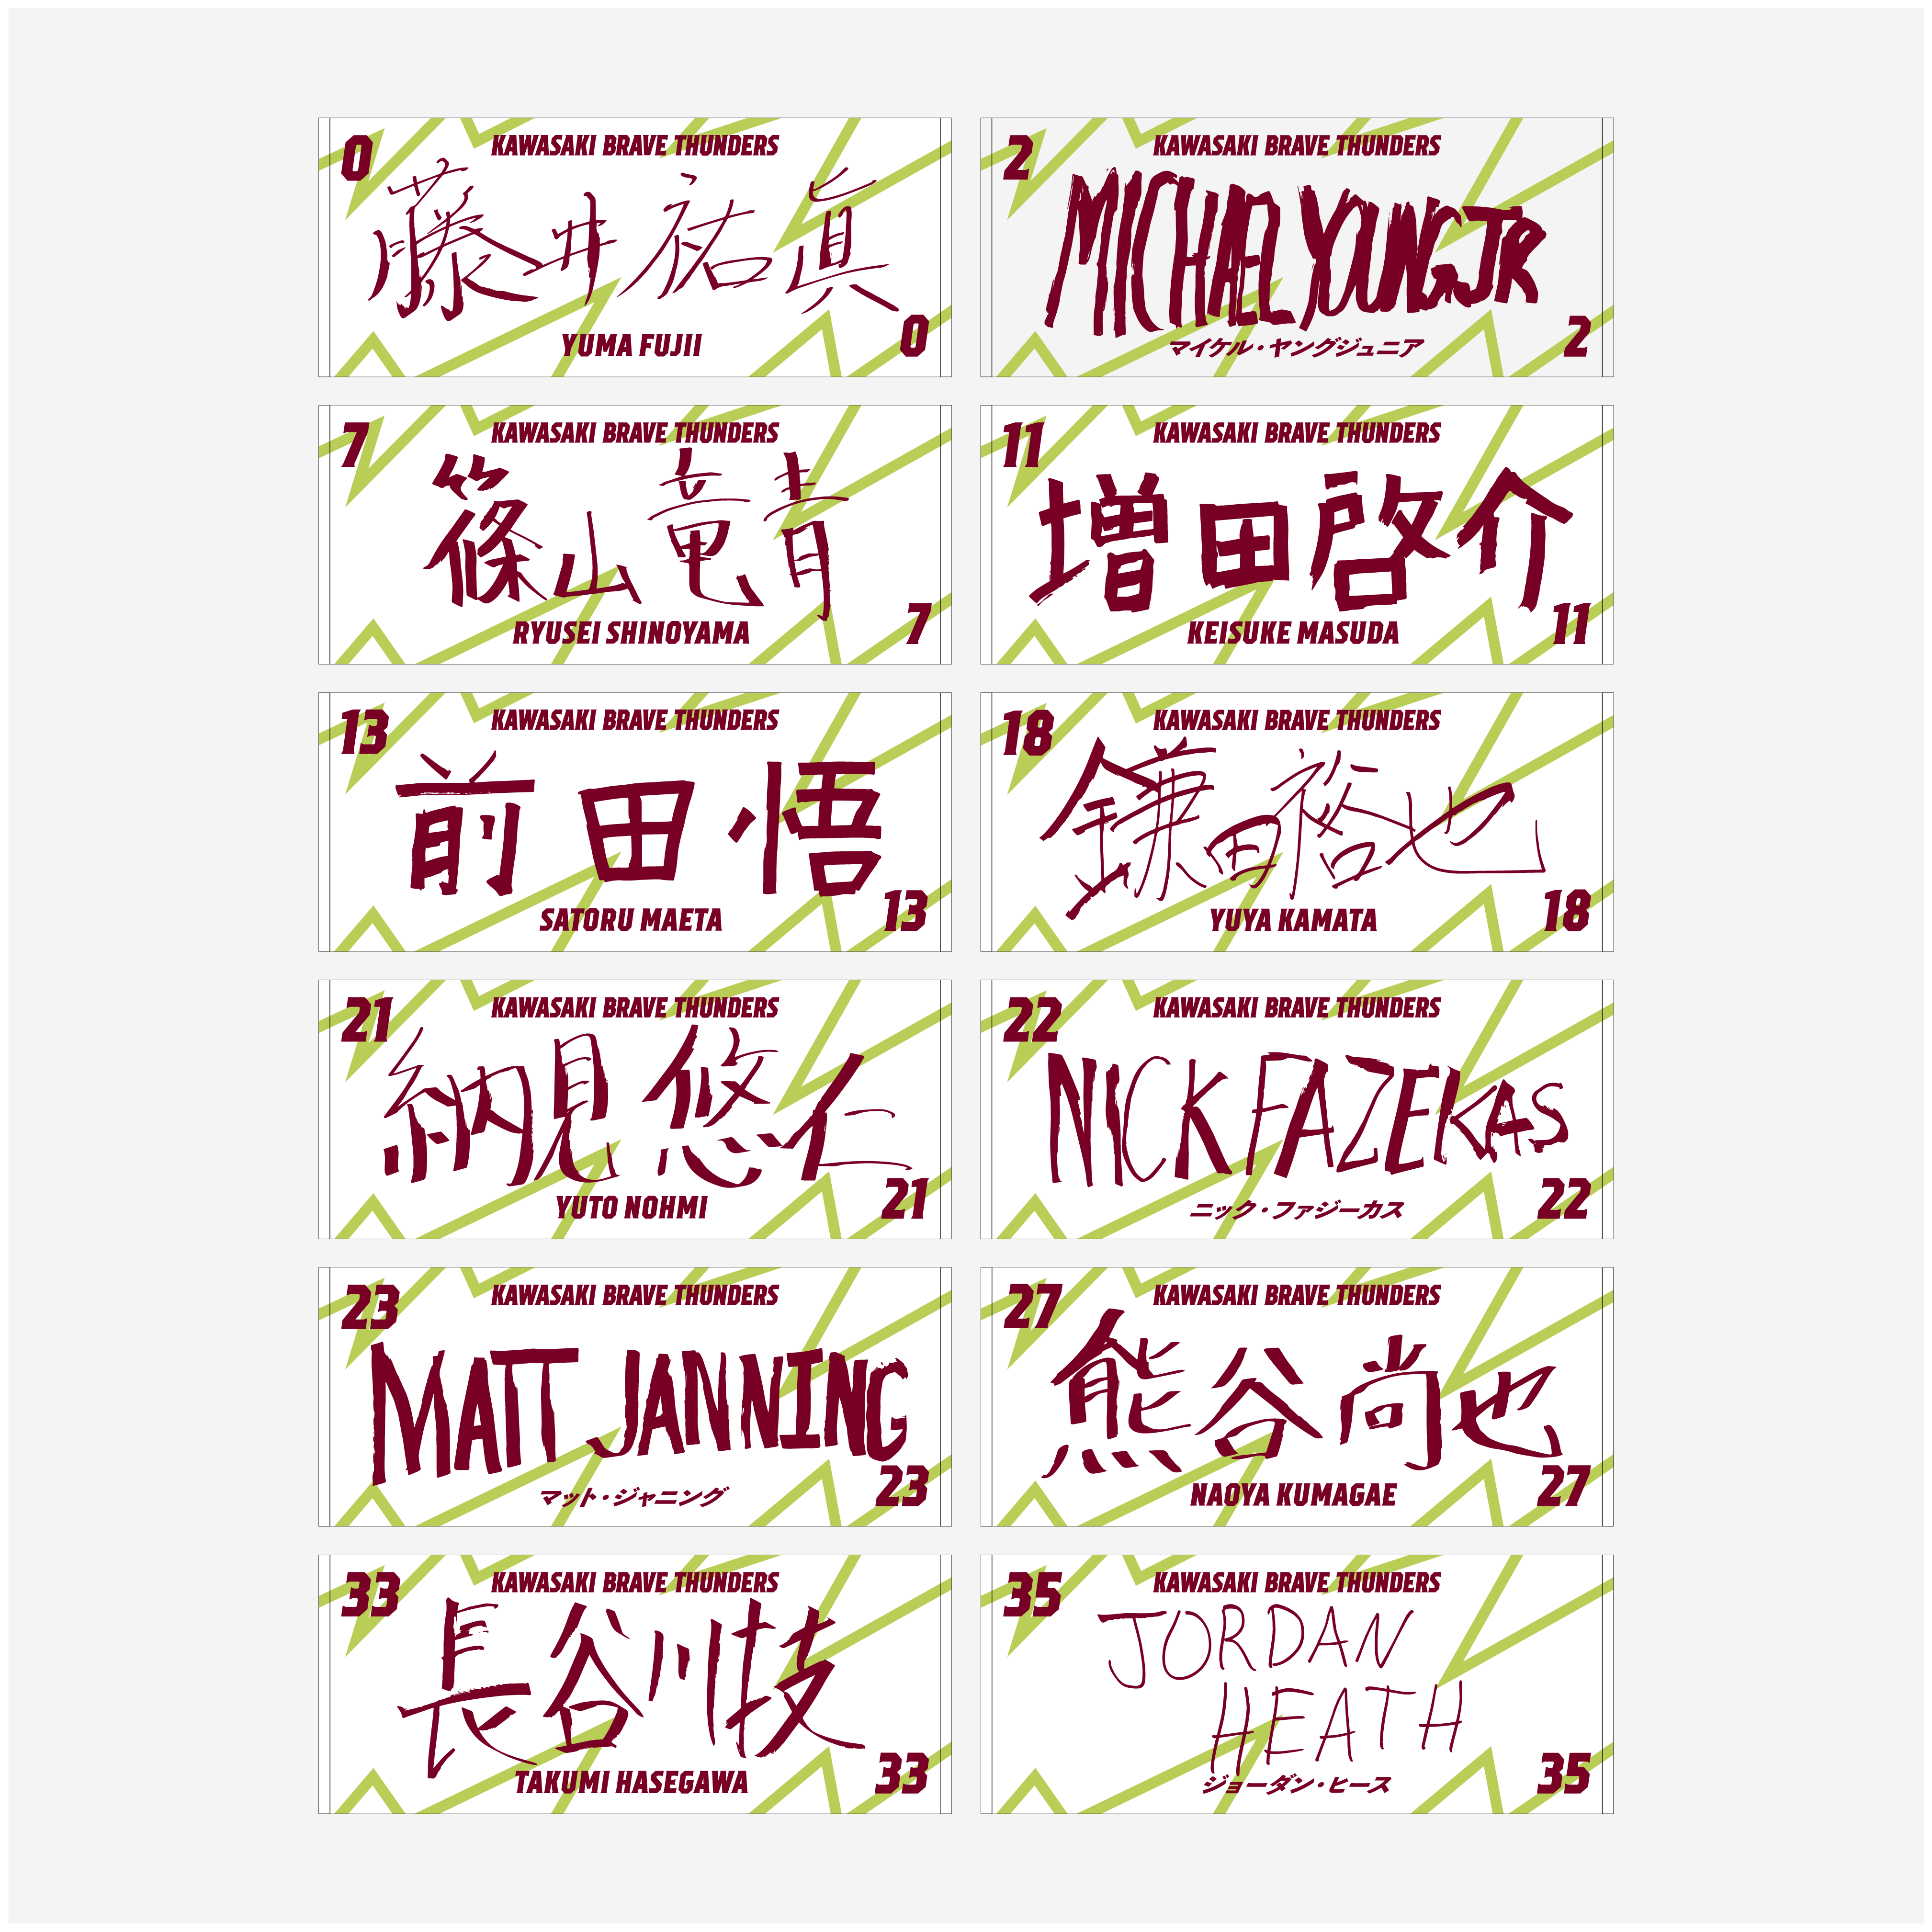 0
KAWASAKI BRAVE THUNDERS
藤井祐眞
YUMA FUJII
0
2
KAWASAKI BRAVE THUNDERS
MICHAEL YOUNG JR
マイケル・ヤングジュニア
2
7
KAWASAKI BRAVE THUNDERS
篠山竜青
RYUSEI SHINOYAMA
7
11
KAWASAKI BRAVE THUNDERS
増田啓介
KEISUKE MASUDA
11
13
KAWASAKI BRAVE THUNDERS
前田悟
SATORU MAETA
13
18
KAWASAKI BRAVE THUNDERS
鎌田裕也
YUYA KAMATA
18
21
KAWASAKI BRAVE THUNDERS
納見悠仁
YUTO NOHMI
21
22
KAWASAKI BRAVE THUNDERS
NICK FAZEKAS
ニック・ファジーカス
22
23
KAWASAKI BRAVE THUNDERS
MATT JANNING
マット・ジャニング
23
27
KAWASAKI BRAVE THUNDERS
熊谷尚也
NAOYA KUMAGAE
27
33
KAWASAKI BRAVE THUNDERS
長谷川技
TAKUMI HASEGAWA
33
35
KAWASAKI BRAVE THUNDERS
JORDAN
HEATH
ジョーダン・ヒース
35